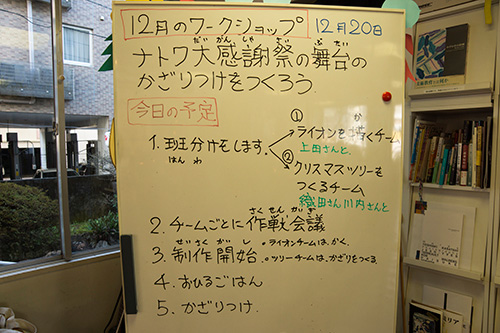 12月のワークショップ 12月20日
だい かんしゃ さい ぶ たい
ナトワ大感謝祭の舞台の
かざりつけをつくろう.
今日の予定
① か
1. 班分けをします. ライオンを描くチーム
はん わ 上田さんと.
② クリスマスツリーも
つくるチーム
織田さん川内さんと
さく せん かい ぎ
2. チームごとに作戦会議
せい さく かい し
3. 制作開始. ◦ライオンチームは、かく.
◦ツリーチームは、かざりをつくる.
4. おひるごはん
5. かざりつけ.